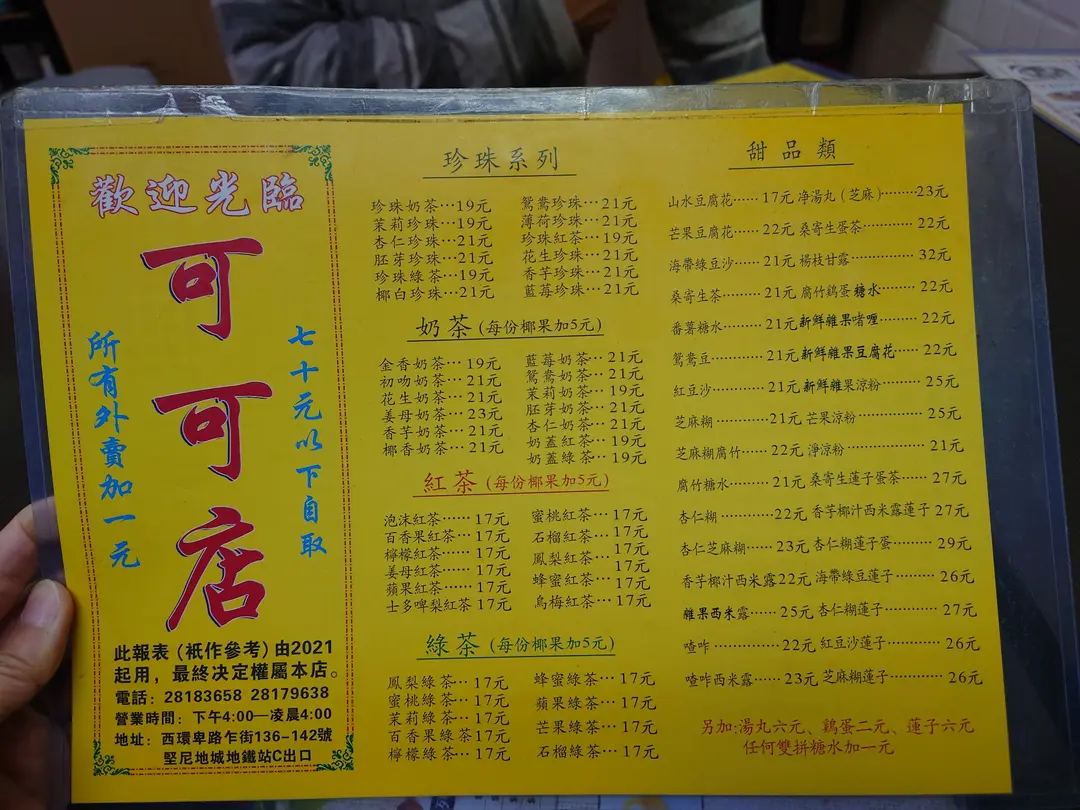 歡迎光臨
可可店
七十元以下自取
所有外賣加一元
此報表（祇作參考）由2021
起用，最終决定權屬本店。
電話：28183658 28179638
營業時間：下午4:00—凌晨4:00
地址：西環卑路乍街136-142號
堅尼地城地鐵站C出口
珍珠系列
珍珠奶茶…19元 鴛鴦珍珠…21元
茉莉珍珠…19元 薄荷珍珠…21元
杏仁珍珠…21元 珍珠紅茶…19元
胚芽珍珠…21元 花生珍珠…21元
珍珠綠茶…19元 香芋珍珠…21元
椰白珍珠…21元 藍莓珍珠…21元
奶茶(每份椰果加5元)
金香奶茶…19元 藍莓奶茶…21元
初吻奶茶…21元 鴛鴦奶茶…21元
花生奶茶…21元 茉莉奶茶…19元
姜母奶茶…23元 胚芽奶茶…21元
香芋奶茶…21元 杏仁奶茶…21元
椰香奶茶…21元 奶蓋紅茶…19元
奶蓋綠茶…19元
紅茶(每份椰果加5元)
泡沫紅茶……17元 蜜桃紅茶…17元
百香果紅茶…17元 石榴紅茶…17元
檸檬紅茶……17元 鳳梨紅茶…17元
姜母紅茶……17元 蜂蜜紅茶…17元
蘋果紅茶……17元 烏梅紅茶…17元
士多啤梨紅茶 17元
綠茶(每份椰果加5元)
鳳梨綠茶…17元 蜂蜜綠茶…17元
蜜桃綠茶…17元 蘋果綠茶…17元
茉莉綠茶…17元 芒果綠茶…17元
百香果綠茶17元 石榴綠茶…17元
檸檬綠茶…17元
甜品類
山水豆腐花……17元 净湯丸（芝麻）………23元
芒果豆腐花……22元 桑寄生蛋茶…………22元
海帶綠豆沙……21元 楊枝甘露……………32元
桑寄生茶………21元 腐竹鷄蛋糖水………22元
番薯糖水………21元 新鮮雜果啫喱………22元
鴛鴦豆…………21元 新鮮雜果豆腐花……22元
紅豆沙…………21元 新鮮雜果涼粉………25元
芝麻糊…………21元 芒果涼粉……………25元
芝麻糊腐竹……22元 淨涼粉………………21元
腐竹糖水………21元 桑寄生蓮子蛋茶……27元
杏仁糊…………22元 香芋椰汁西米露蓮子 27元
杏仁芝麻糊……23元 杏仁糊蓮子蛋………29元
香芋椰汁西米露22元 海帶綠豆蓮子………26元
雜果西米露……25元 杏仁糊蓮子…………27元
喳咋……………22元 紅豆沙蓮子…………26元
喳咋西米露……23元 芝麻糊蓮子…………26元
另加:湯丸六元、鷄蛋二元、蓮子六元
任何雙拼糖水加一元